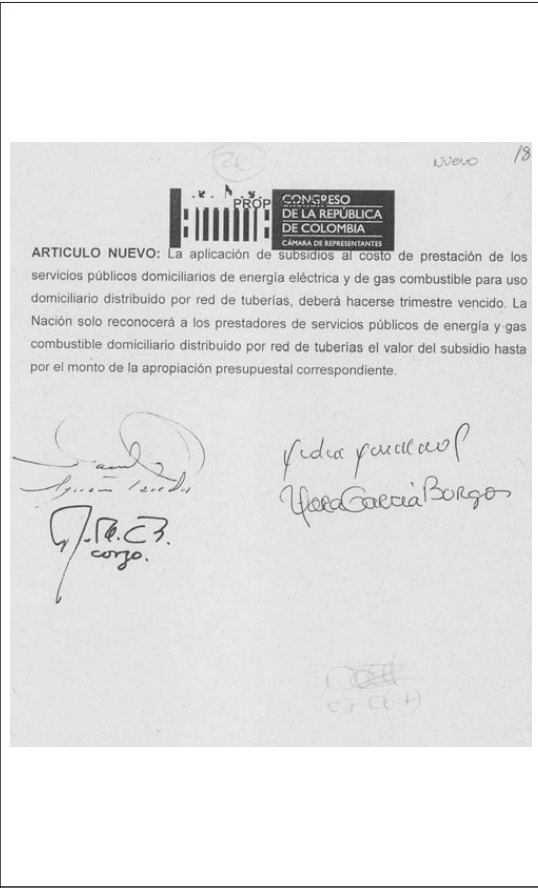 nuevo
18
PROP
CONGRESO
DE LA REPÚBLICA
DE COLOMBIA
CÁMARA DE REPRESENTANTES
ARTICULO NUEVO: La aplicación de subsidios al costo de prestación de los
servicios públicos domiciliarios de energía eléctrica y de gas combustible para uso
domiciliario distribuido por red de tuberías, deberá hacerse trimestre vencido. La
Nación solo reconocerá a los prestadores de servicios públicos de energía y gas
combustible domiciliario distribuido por red de tuberías el valor del subsidio hasta
por el monto de la apropiación presupuestal correspondiente.
García Borgos
corzo.